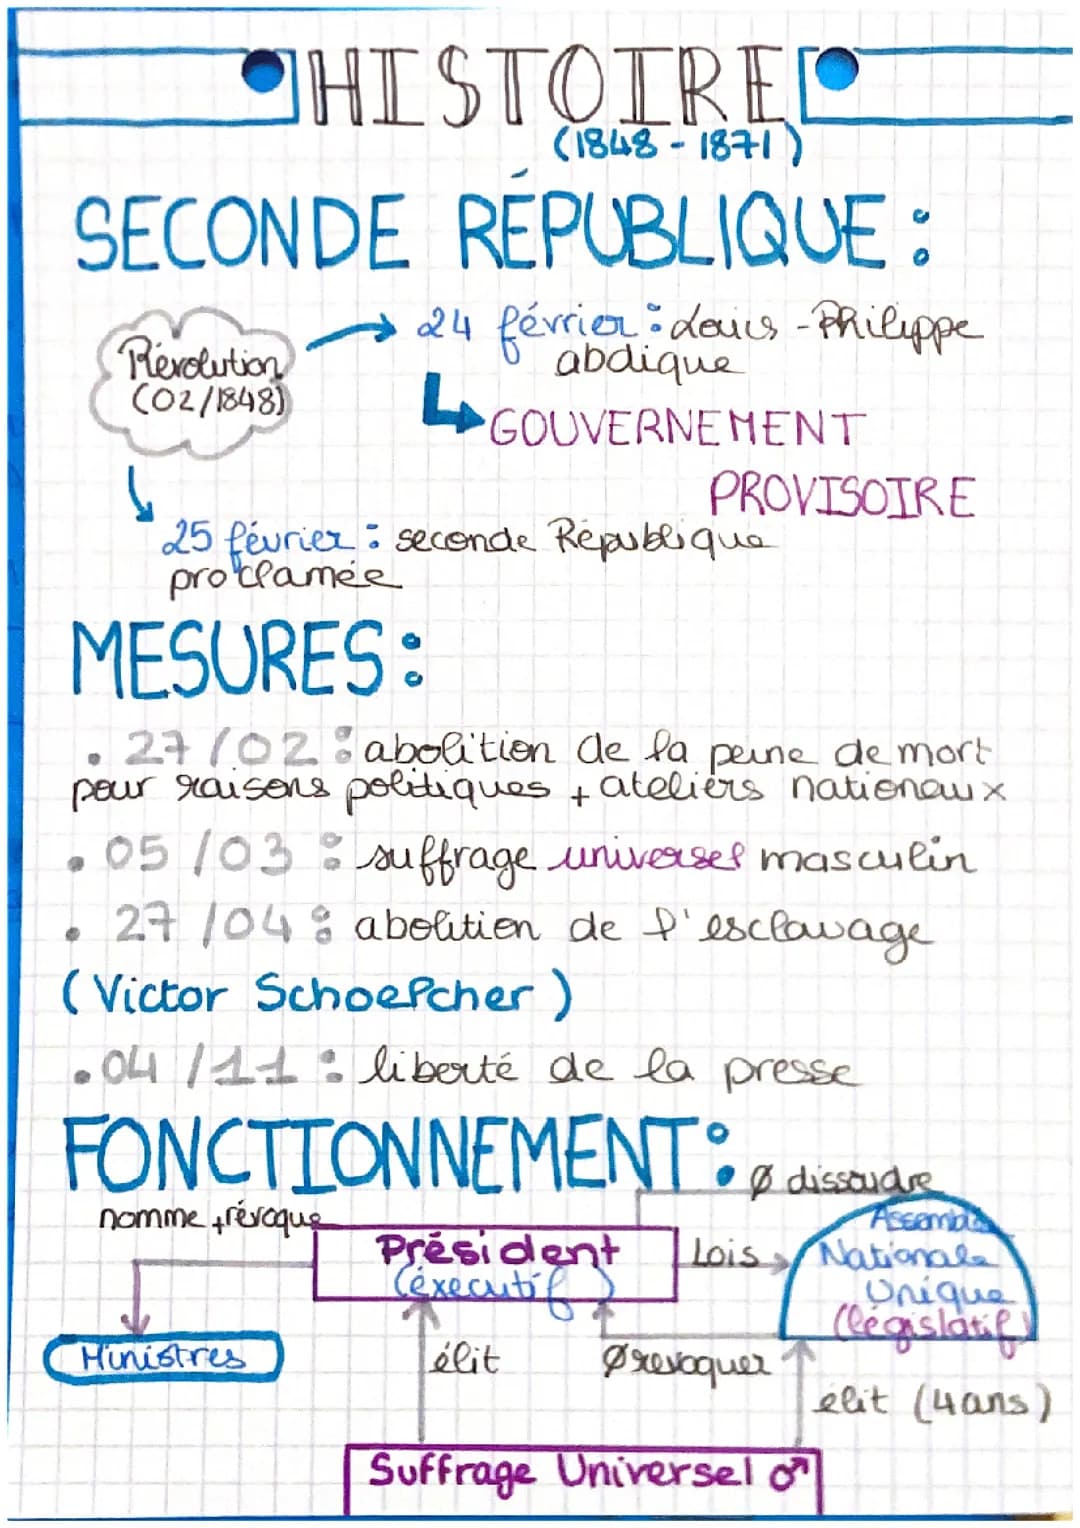 HISTOIRE
(1848 - 1871)
SECONDE RÉPUBLIQUE :
Révolution
(02/1848)
24 février : Louis-Philippe
abdique
GOUVERNEMENT
PROVISOIRE
25 février : seconde République
proclamée
MESURES :
. 27/02 : abolition de la peine de mort
pour raisons politiques + ateliers nationaux
. 05/03 : suffrage universel masculin
. 27/04 : abolition de l'esclavage
(Victor Schoelcher)
. 04/11 : liberté de la presse
FONCTIONNEMENT :
Ø dissoudre
nomme + révoque
Président
(éxecutif)
Lois
Assemblée
Nationale
Unique
(législatif)
Ministres
élit
Ø revoquer
élit (4 ans)
Suffrage Universel ♂